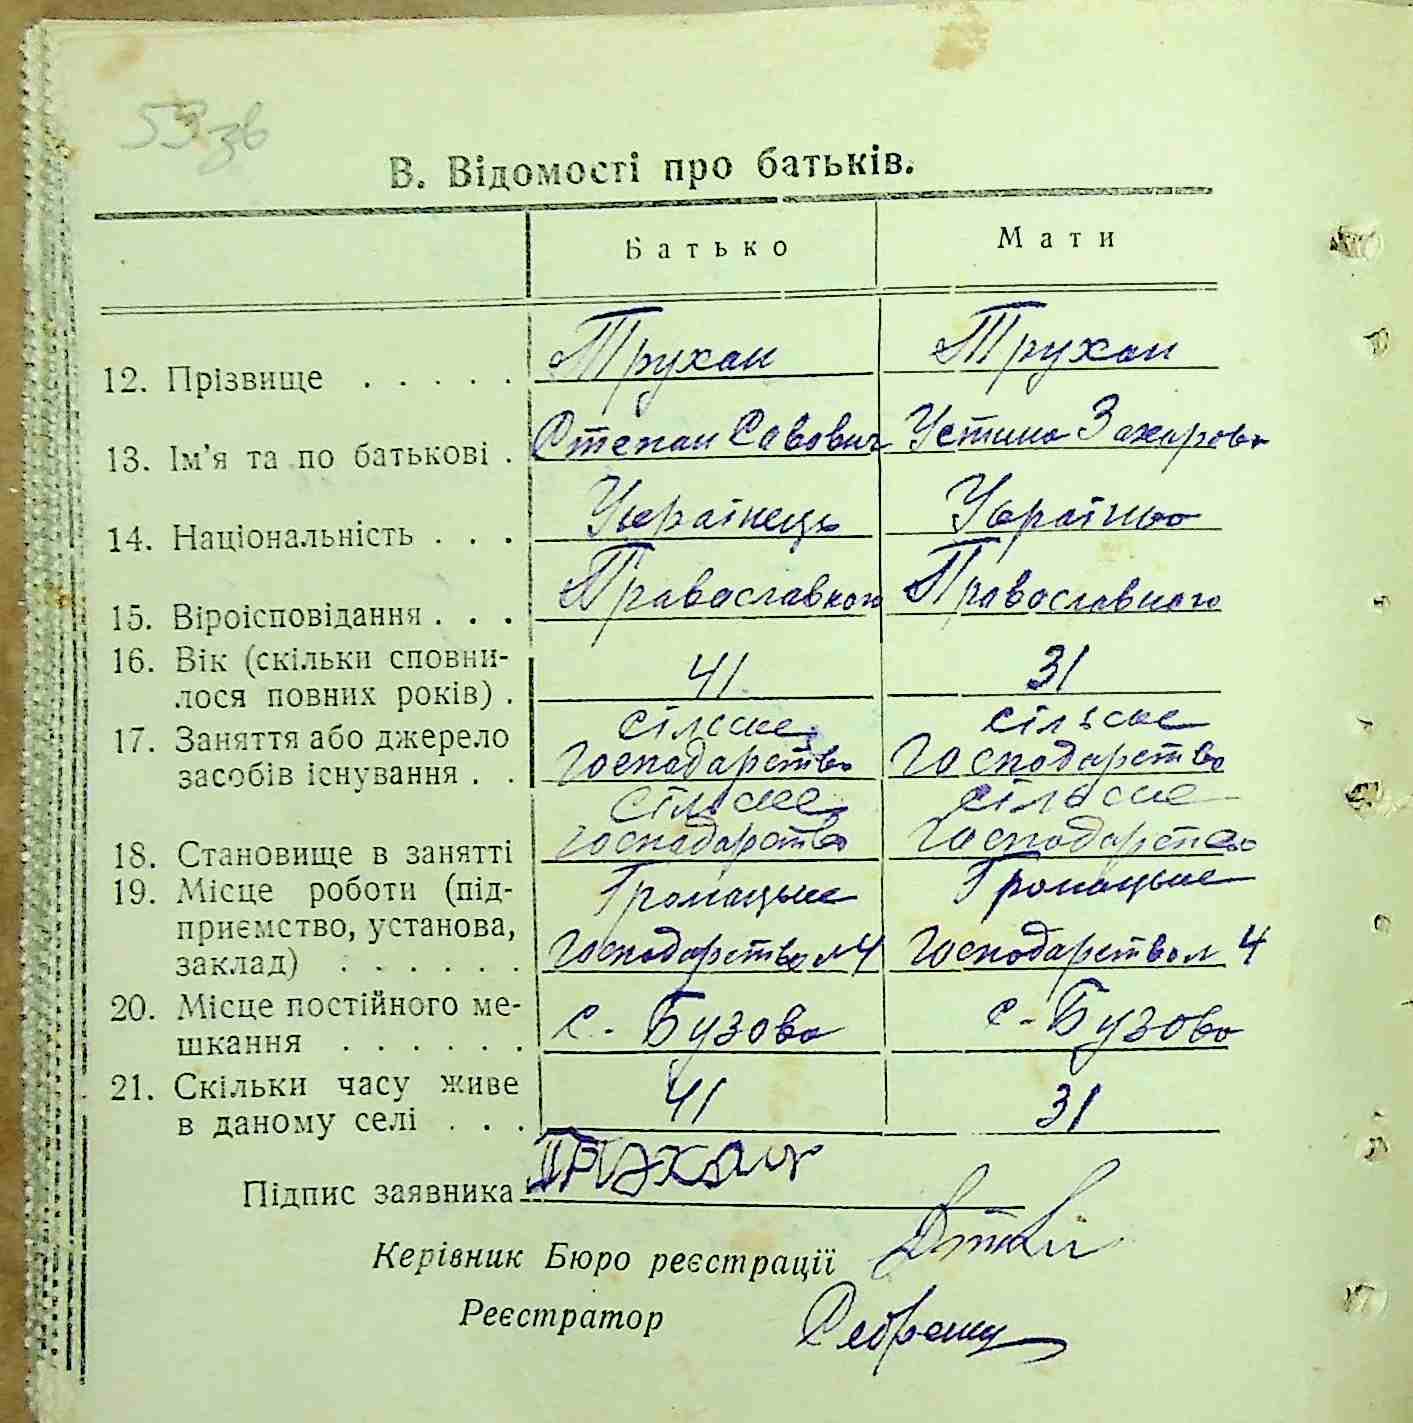 53 зв
В. Відомості про батьків.
Батько Мати
12. Прізвище . . . . . Трухан Трухан
13. Ім'я та по батькові . Степан Савович Устина Захарова
14. Національність . . . Українець Україінка
15. Віроісповідання . . . Православного Православного
16. Вік (скільки сповни-
лося повних років) . 41 31
17. Заняття або джерело сільське сільське
засобів існування . . господарство господарство
сільське сільське
18. Становище в занятті господарство господарство
19. Місце роботи (під- Громацьке Громацьке
приємство, установа,
заклад) . . . . . . господарство м 4 господарство м 4
20. Місце постійного ме-
шкання . . . . . . с. Бузова с. Бузова
21. Скільки часу живе
в даному селі . . . 41 31
Підпис заявника Трухан
Керівник Бюро реєстрації
Реєстратор